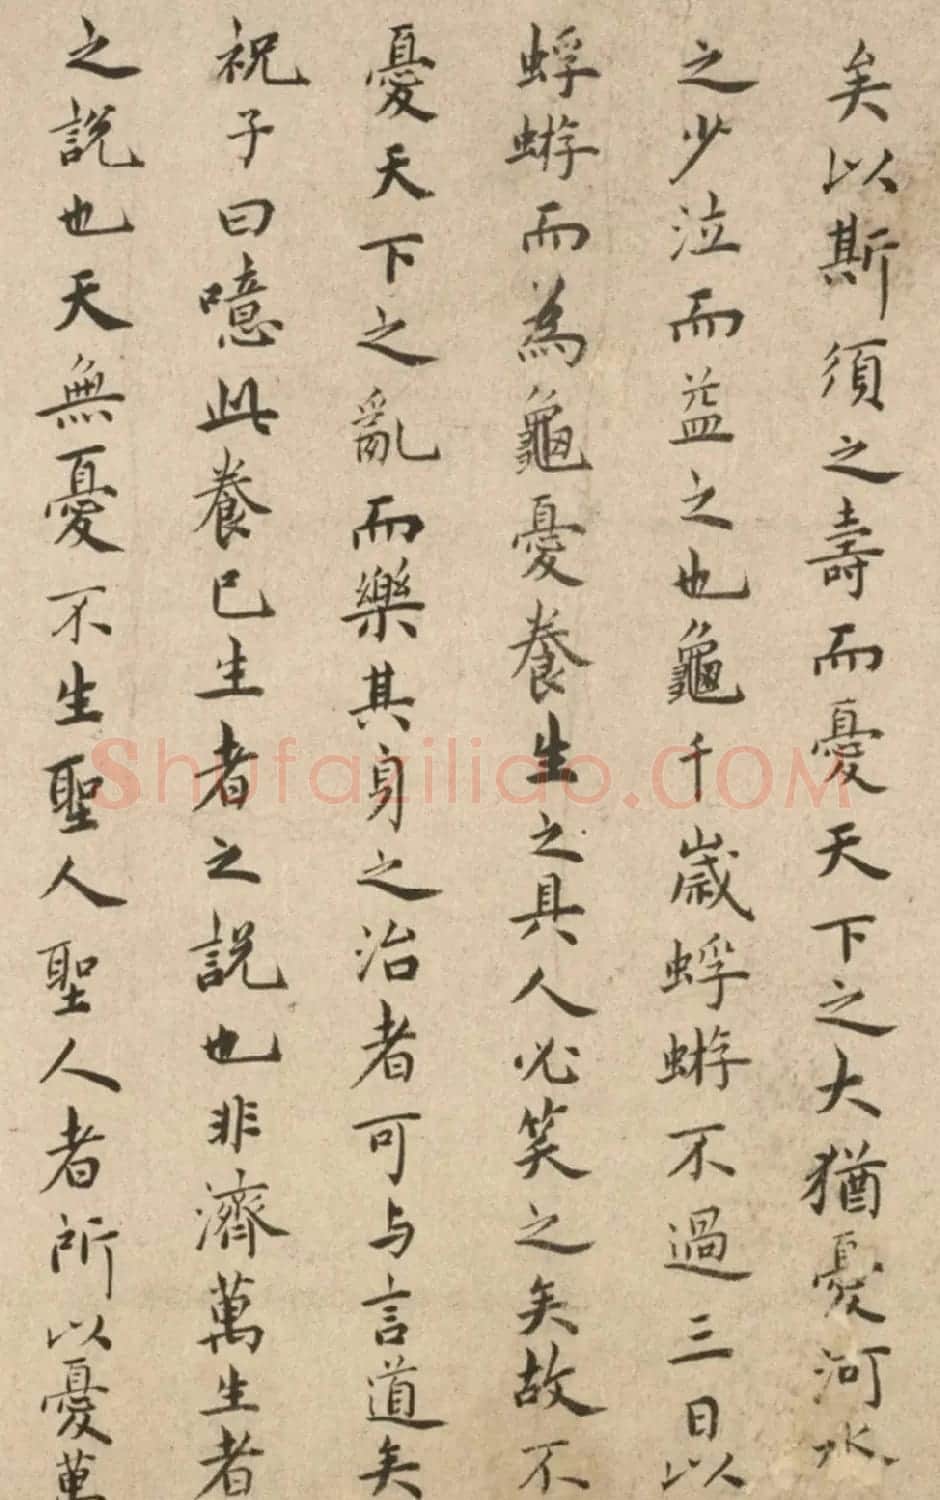 矣以斯須之壽而憂天下之大猶憂河水
之少泣而益之也龜千歲蜉蝣不過三日以
蜉蝣而為龜憂養生之具人必笑之矣故不
憂天下之亂而樂其身之治者可与言道矣
祝子曰噫此養已生者之説也非濟萬生者
之説也天無憂不生聖人聖人者所以憂萬
shufaziliao.com